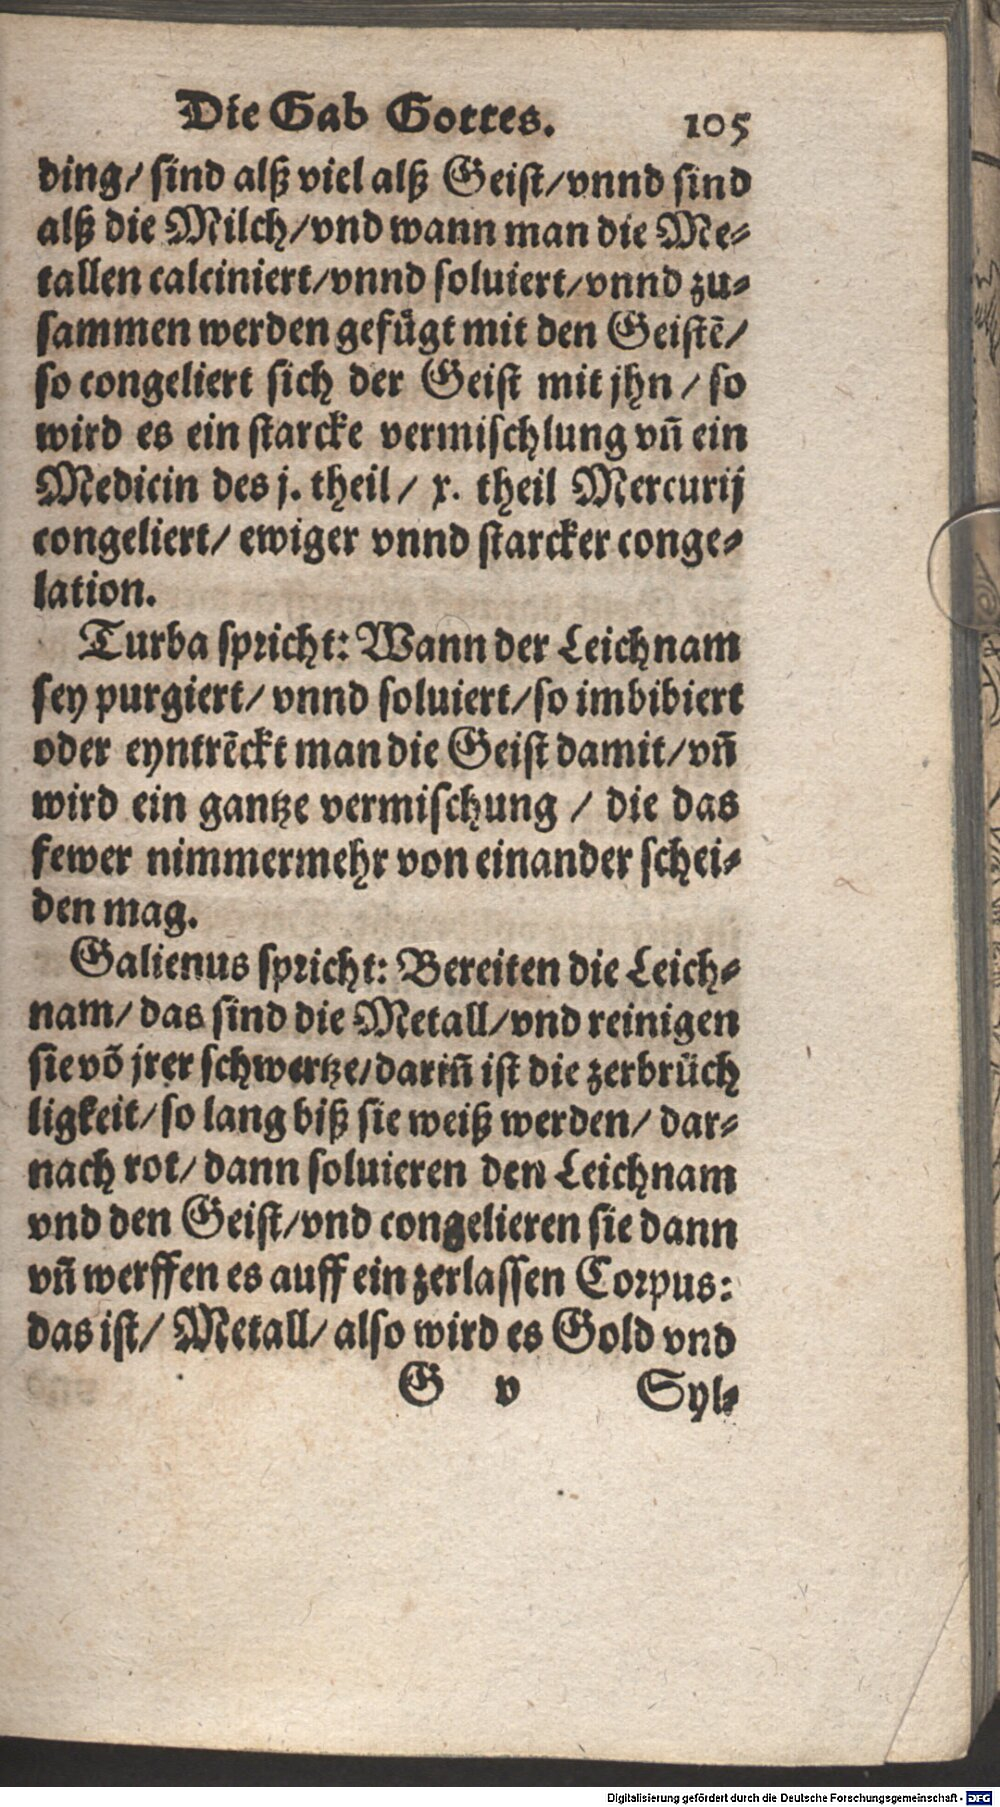 Die Gab Gottes. 105
ding/ sind alß viel alß Geist/vnnd sind
alß die Milch/vnd wann man die Me-
tallen calciniert/vnnd soluiert/vnnd zu-
sammen werden gefügt mit den Geistē/
so congeliert sich der Geist mit jhn / so
wird es ein starcke vermischlung vñ ein
Medicin des j. theil/ x. theil Mercurij
congeliert/ ewiger vnnd starcker conge-
lation.
Turba spricht: Wann der Leichnam
sey purgiert/ vnnd soluiert/so imbibiert
oder eyntrēckt man die Geist damit/vñ
wird ein gantze vermischung / die das
fewer nimmermehr von einander schei-
den mag.
Galienus spricht: Bereiten die Leich-
nam/ das sind die Metall/vnd reinigen
sie võ jrer schwertze/dariñ ist die zerbrüch
ligkeit/so lang biß sie weiß werden/ dar-
nach rot/ dann soluieren den Leichnam
vnd den Geist/vnd congelieren sie dann
vñ werffen es auff ein zerlassen Corpus:
das ist/ Metall/ also wird es Gold vnd
G v Syl-
Digitalisierung gefördert durch die Deutsche Forschungsgemeinschaft - DFG